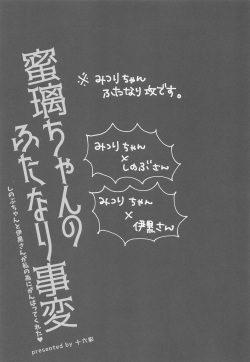 蜜璃ちゃんの
ふたなり事変
しのぶちゃんと伊黒さんが私の為にがんばってくれた♥
presented by 十六夜
※みつりちゃん
ふたなり攻です。
みつりちゃん
×
しのぶさん
みつりちゃん
×
伊黒さん